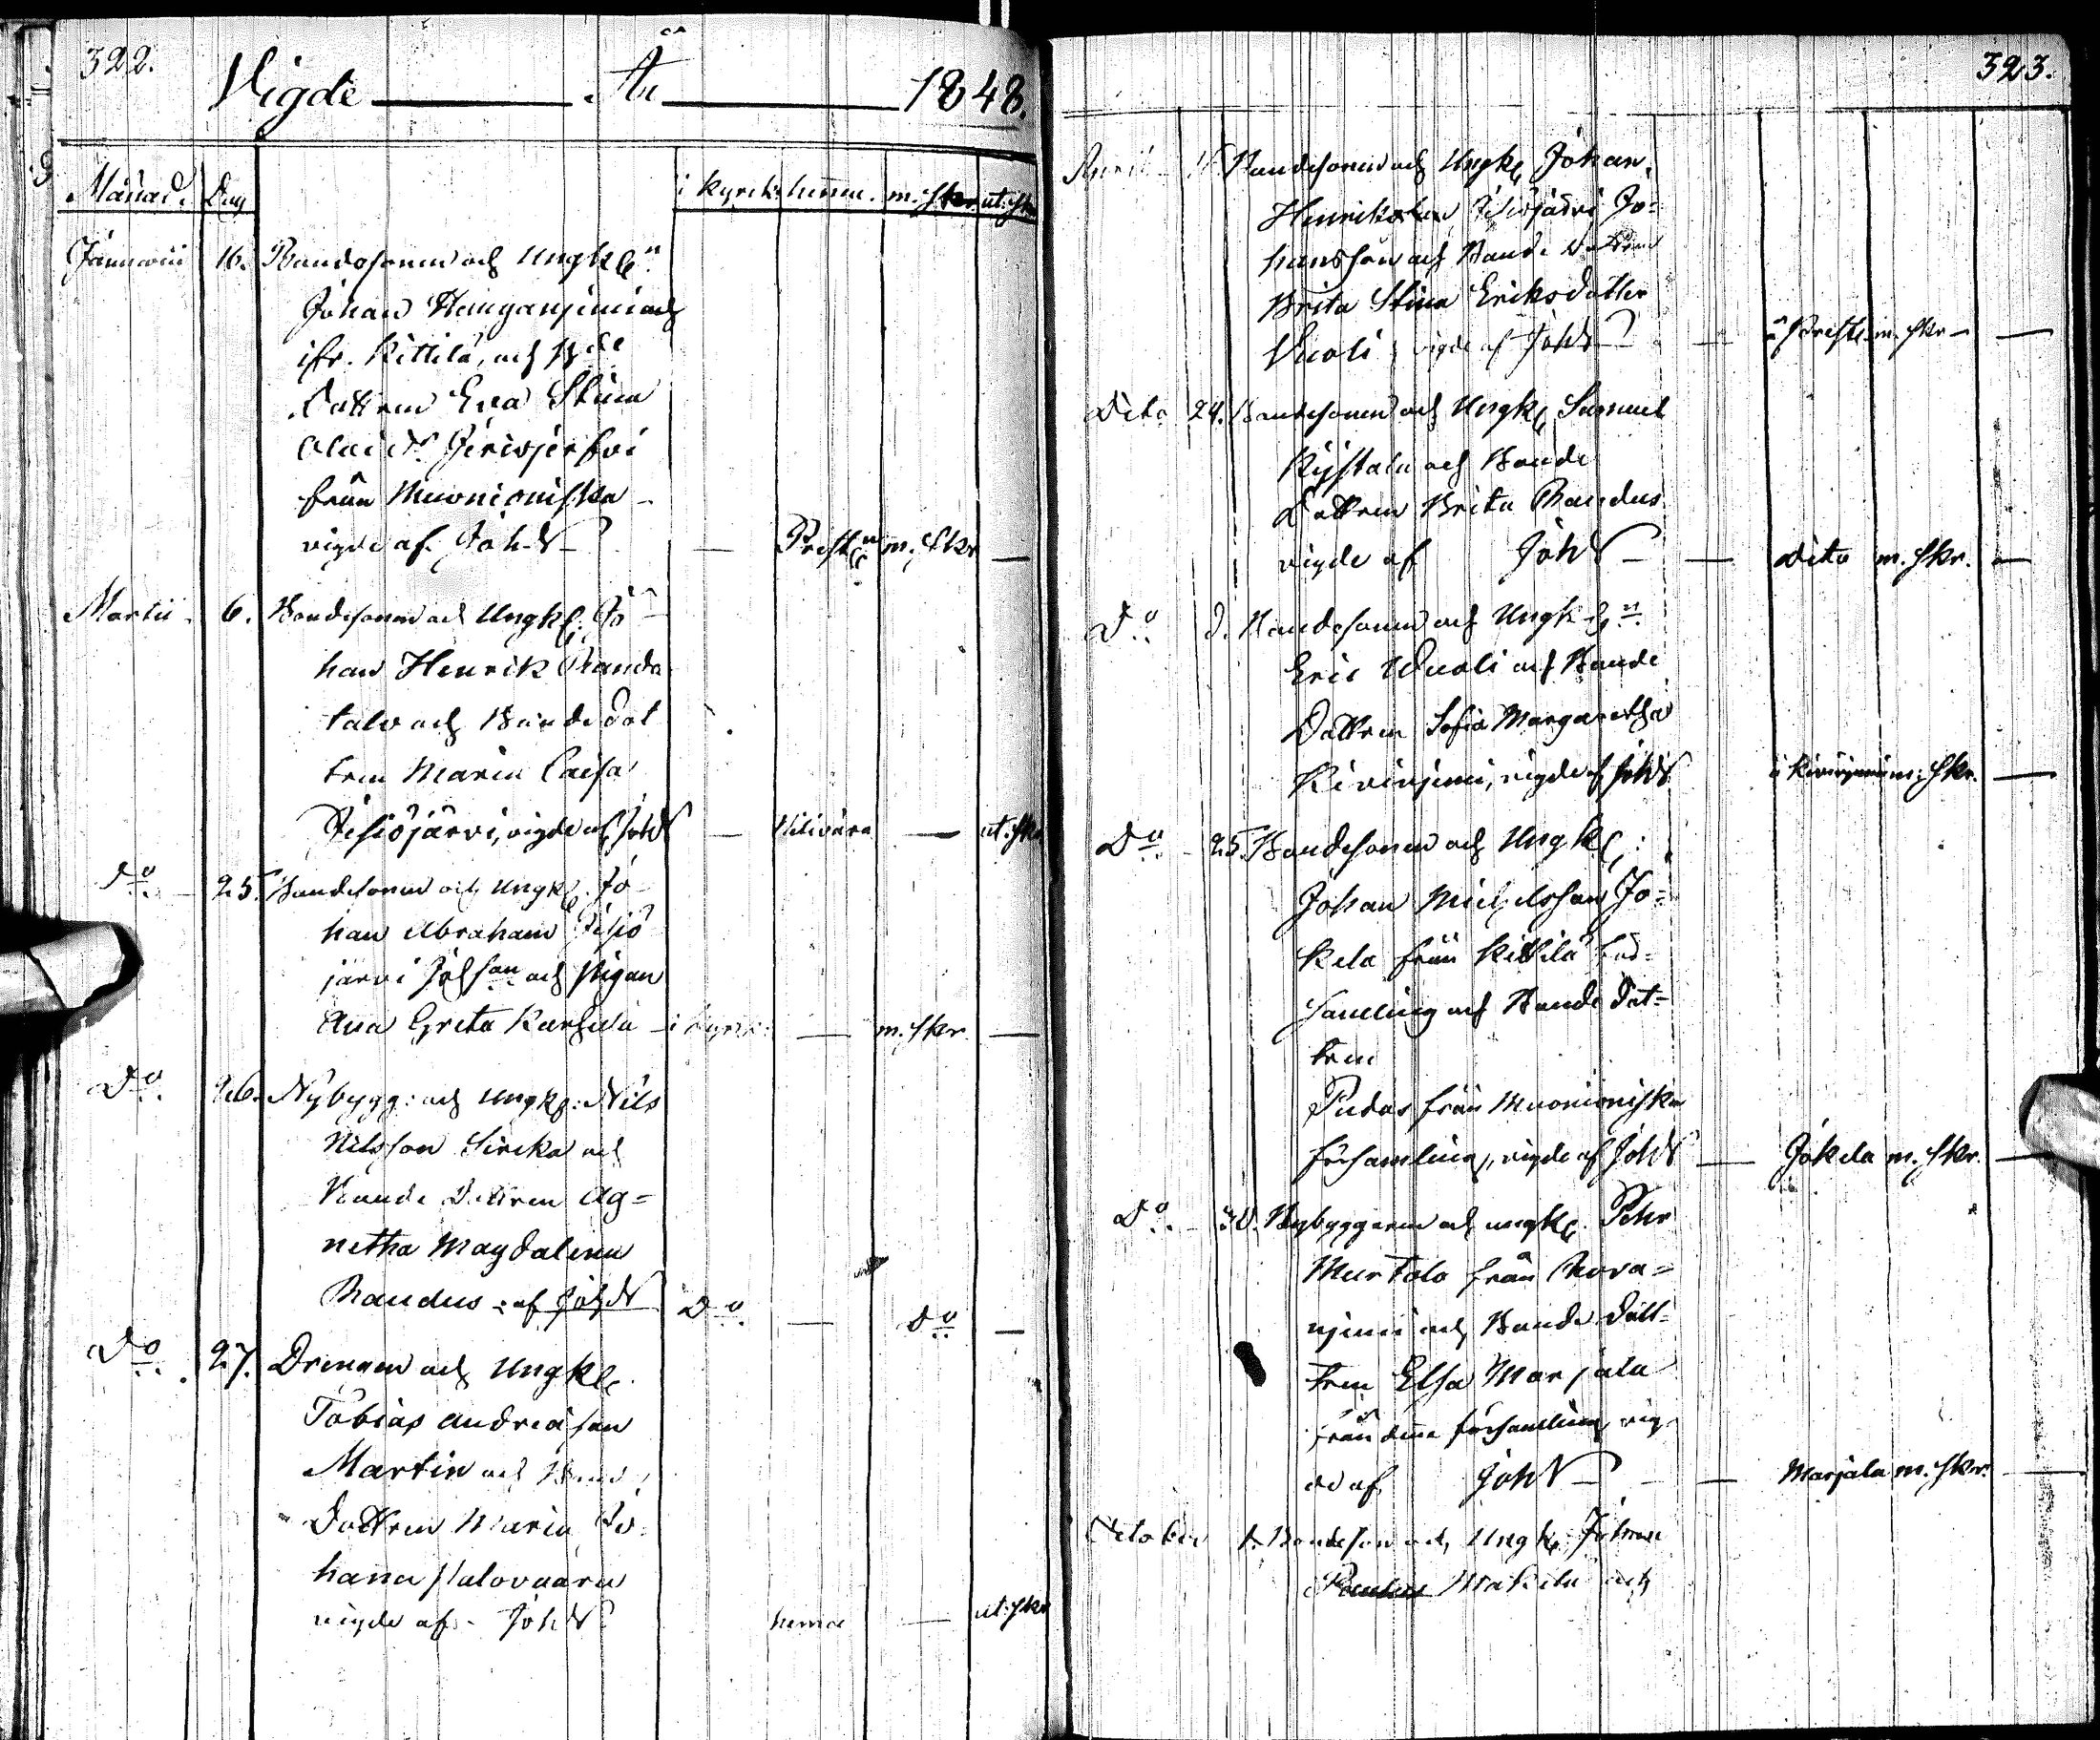 322.
Vigde År 1848.
Månad. Dag i kyrk: hemm. m. skr. ut. skr
Januarii 16. Bondesonen och Ungkl:n
Johan
ifr. Kittilä, och B:de
Dottren Eva Stina
Olai D:r
från Muonioniska
vigde af Joh. W — Prest m. skr —
Martii 6. Bondesonen och Ungkl: Jo
han Henrik Randa
talo och Bondedot
tren Maria Caisa
Jesiöjärvi, vigde af Joh W — ut. skr
D:o 25. Bondesonen och Ungkl. Jo
han Abraham Jesiö
järvi Johson och Pigan
Ana Greta i kyrk: — m. skr. —
D:o 26. Nybygg: och Ungkl: Nils
Nilsson Sircka och
Bonde Dottren Ag=
netha Magdalena
af Joh W D:o — D:o —
D:o 27. Drengen och Ungkl.
Tobias Andreason
Martin och Bond
Dottren Maria Jo=
hana Palovaara
vigde af Joh W hema — ut. skr
323.
April Bondesonen och Ungkl. Johan
Henrikson Jesiöjärvi Jo=
hansson och Bonde Dottren
Brita Stina Eriksdotter
Vuoli, vigde af Joh W — m. skr —
Dito 24. Bondesonen och Ungkl. Samuel
och Bonde
Dottren Brita
vigde af Joh W — — dito m. skr. —
D:o D. Bondesonen och Ungkl:n
Eric Vuoli och Bonde
Dottren Sofia Margaretha
Kiviniemi, vigde af Joh W i Kiviniemi m. skr. —
D:o 25. Bondesonen och Ungkl:
Johan Michelsson Jo=
kela från Kittilä För=
samling och Bonde Dot=
tren
Pudas från Muonioniska
församling, vigde af Joh W — Jokela m. skr. —
D:o 30. Nybyggaren och ungkl. Pehr
Murtolo från Rova=
niemi och Bonde Dott=
tren Elsa Marjala
från denna församling vig
de af Joh W — — Marjala m. skr. —
October 1. Bondeson och Ungkl: Johan
och